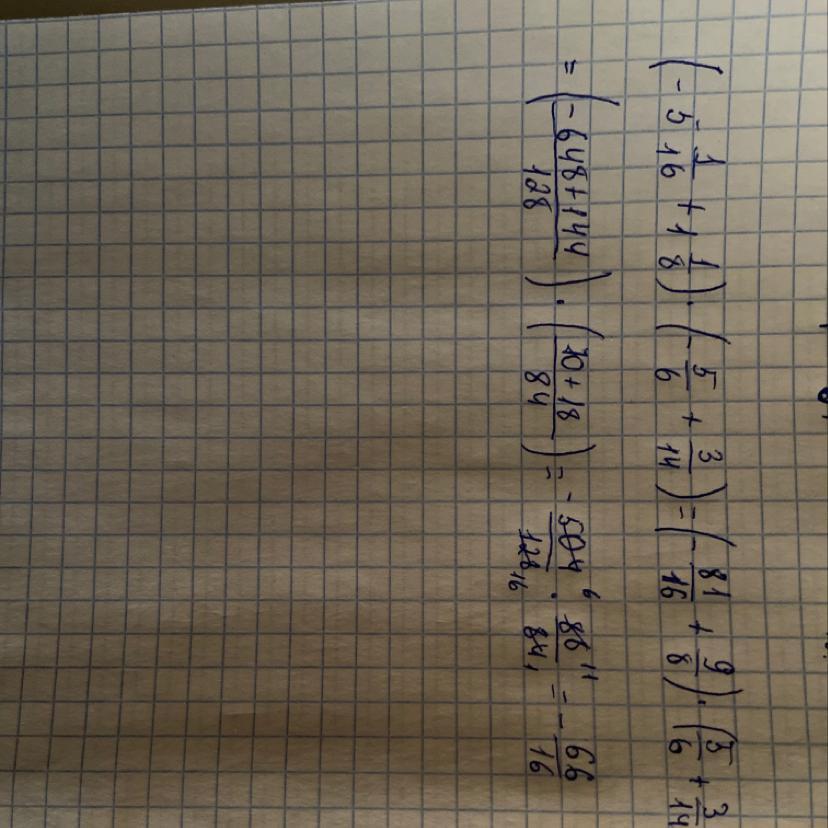 (-5 1/16 + 1 1/8) · (-5/6 + 3/14) = (-81/16 + 9/8) · (5/6 + 3/14
= (-648+144/128) · (70+18/84) = -504 6/128 16 · 88 11/84 1 = -66/16